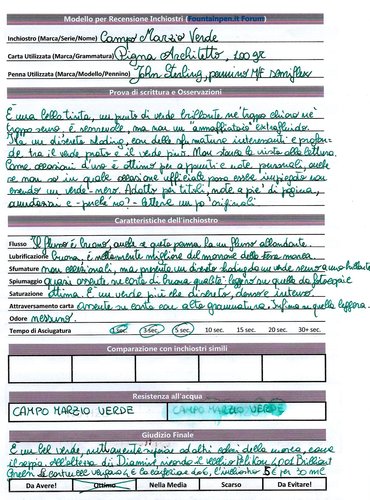 Modello per Recensione Inchiostri (Fountainpen.it Forum)
Inchiostro (Marca/Serie/Nome) Campo Marzio Verde
Carta Utilizzata (Marca/Grammatura) Pigna Architetto, 100 gr
Penna Utilizzata (Marca/Modello/Pennino) John Sterling, pennino M/F semiflex
Prova di scrittura e Osservazioni
È una bella tinta, un punto di verde brillante né troppo chiaro né
troppo scuro, è scorrevole, ma non un "annaffiatoio" extrafluido.
Ha un discreto shading, con delle sfumature interessanti e profon-
de, tra il verde prato e il verde pino. Non stanca la vista alla lettura.
Come occasioni d'uso è ottimo per appunti e note personali, anche
se non so in quale occasione ufficiale possa essere impiegato non
essendo un verde-nero. Adatto per titoli, note a piè di pagina,
e - perché no? - lettere un po' originali
Caratteristiche dell'inchiostro
Flusso Il flusso è buono, anche se questa penna ha un flusso abbondante.
Lubrificazione buona, è nettamente migliore del marrone della stessa marca.
Sfumature non eccezionali, ma presenta un discreto shading da un verde scuro a uno brillante
Spiumaggio quasi assente su carta di buona qualità, leggero su quella da fotocopie
Saturazione ottima. È un verde più che discreto, denso e intenso.
Attraversamento carta assente su carta con alta grammatura. Infima su quella leggera.
Odore nessuno.
Tempo di Asciugatura 1 sec. 3 sec. 5 sec. 10 sec. 15 sec. 20 sec. 30+ sec.
Comparazione con inchiostri simili
Resistenza all'acqua
CAMPO MARZIO VERDE CAMPO MARZIO VERDE
Giudizio Finale
È un bel verde, nettamente superiore ad altri colori della marca, come
il seppia. All'altezza di Diamine, ricorda il vecchio Pelikan 4001 Brilliant
Green. Le cartucce vengono 4 € la confezione da 6, l'inchiostro 5 € per 30 ml
Da Avere! Ottimo Nella Media Scarso Da Evitare!